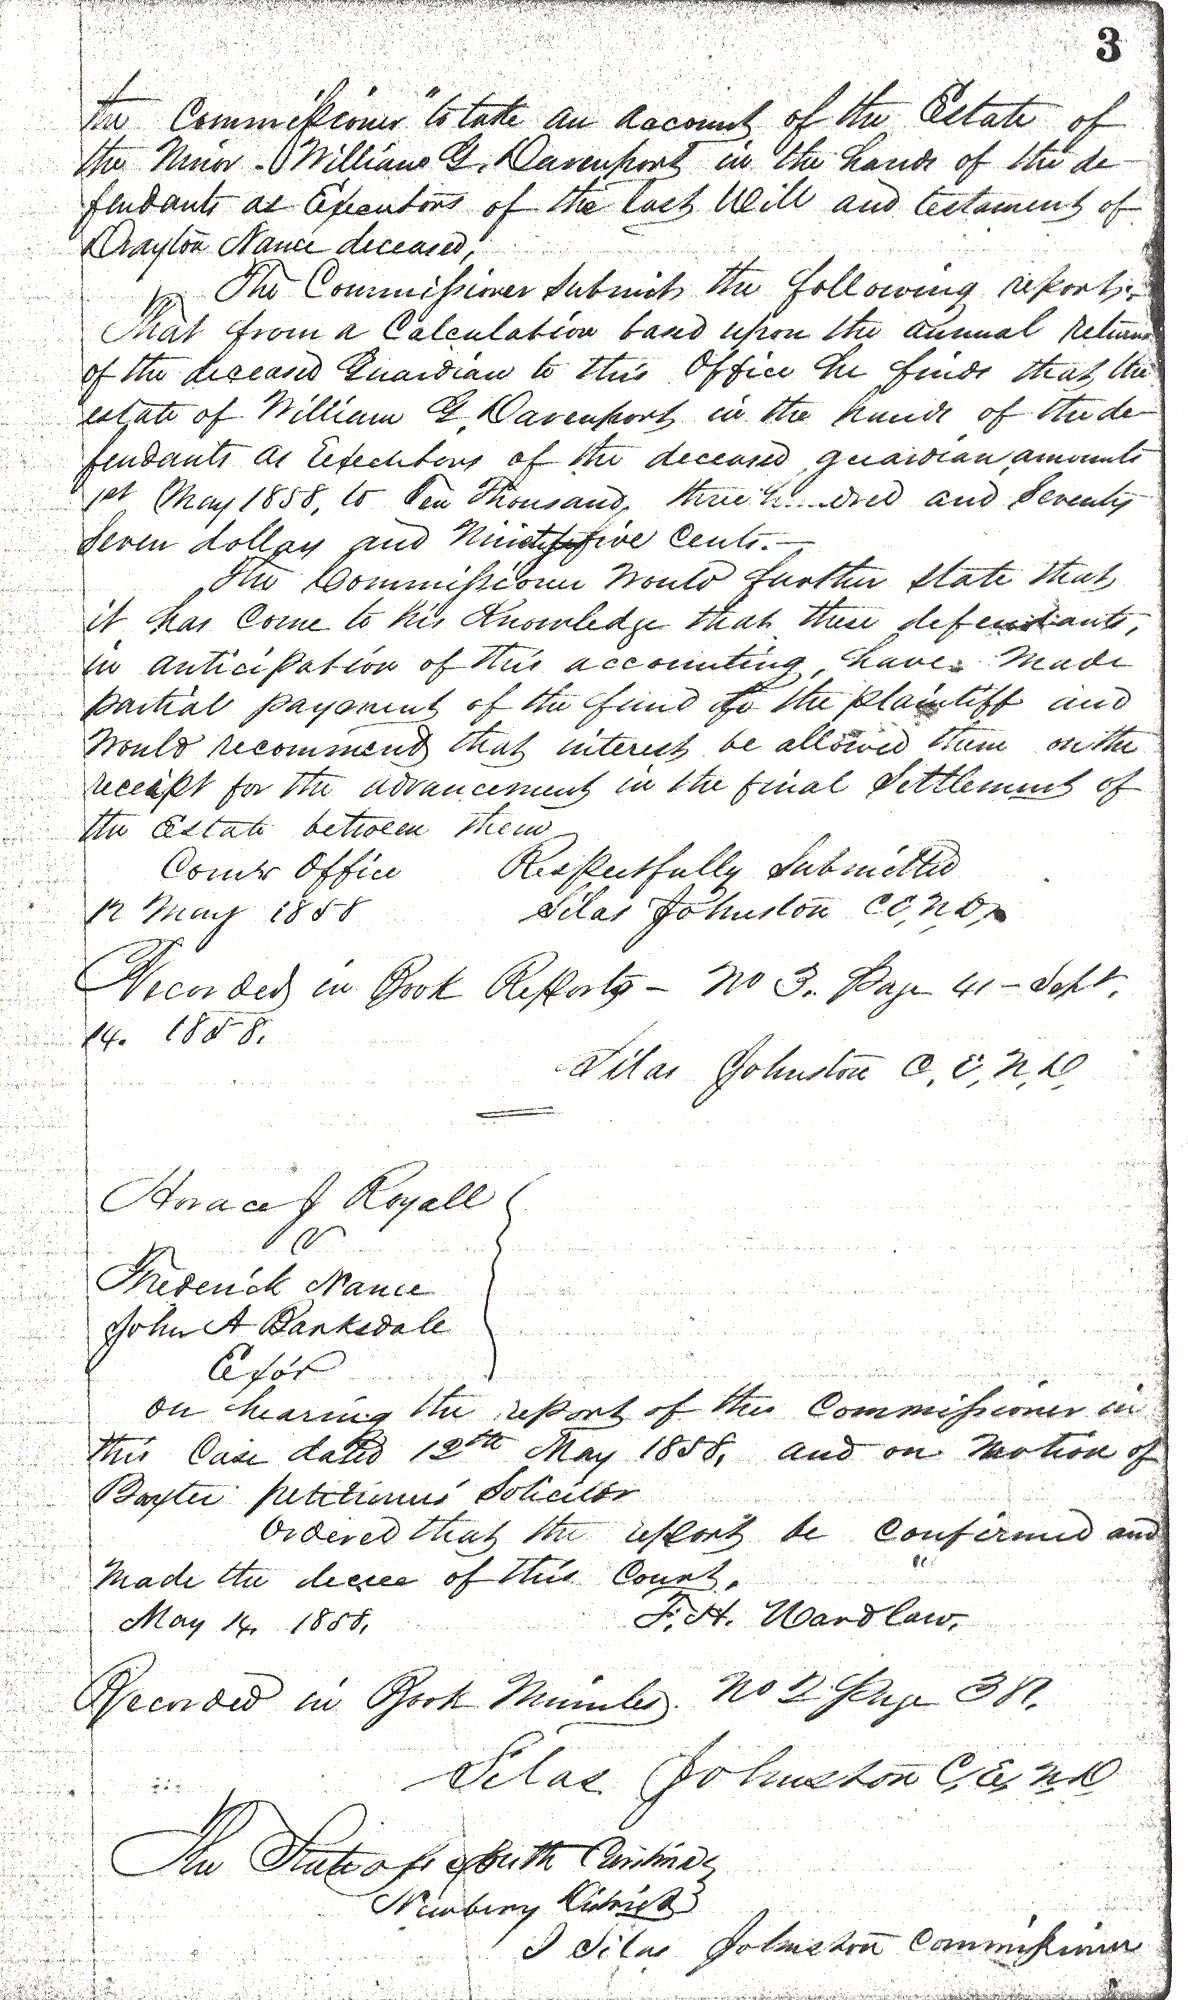 3
the Commissioner "to take an account of the Estate of
the Minor - William G. Davenport in the hands of the de-
fendants as Executors of the last Will and testament of
Drayton Nance deceased,
The Commissioner Submits the following report:-
That from a Calculation based upon the annual returns
of the deceased Guardian to this Office he finds that the
estate of William G. Davenport in the hands of the de-
fendants as Executors of the deceased guardian, amounts
1st May 1858, to Ten Thousand, three hundred and Seventy
Seven dollars and Ninety five Cents.-
The Commissioner Would further state that
it has Come to his Knowledge that these defendants,
in anticipation of this accounting, have made
partial payment of the fund to the plaintiff and
Would recommend that interest be allowed them on the
receipt for the advancement in the final Settlement of
the Estate between them
Comrs Office Respectfully Submitted
12 May 1858 Silas Johnston C E, N, D,
Recorded in Book Reports - No 3. Page 41 - Sept.
14. 1858.
Silas Johnston C, E, N, D,
Horace J Royall
V
Frederick Nance
John A Barksdale
Exors
On hearing the report of the Commissioner in
this Case dated 12th May 1858, and on motion of
Baxter petitioners Solicitor
Ordered that the report be confirmed and
made the decree of this Court.
May 14, 1858. F. H. Wardlaw.
Recorded in Book Minutes. No 2 Page 387.
Silas Johnston C, E, N, D
The State of South Carolina }
Newberry District }
I Silas Johnston Commissioner